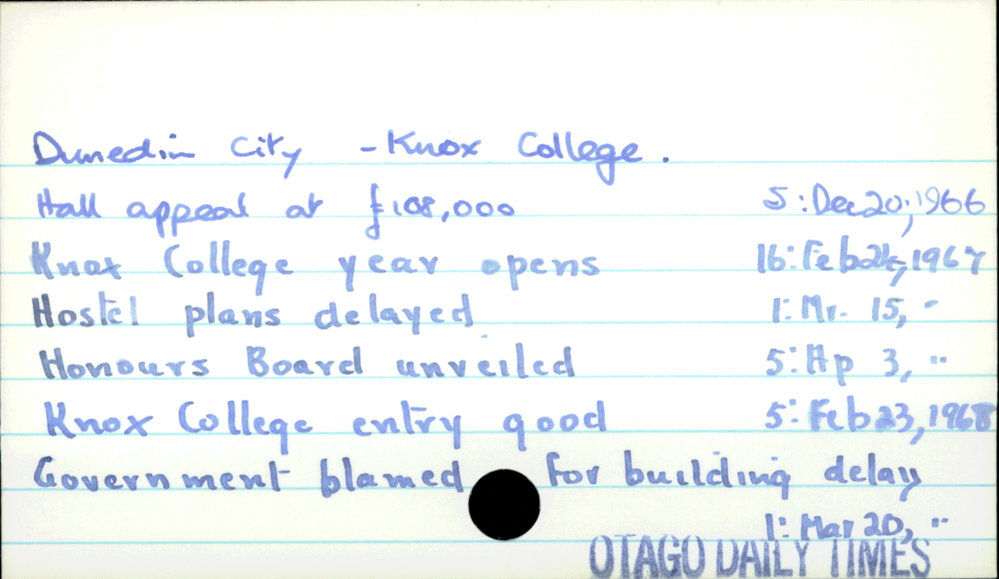 Dunedin City - Knox College.
Hall appeal at £108,000 5: Dec 20, 1966
Knox College year opens 16: Feb 24, 1967
Hostel plans delayed 1: Mr. 15, "
Honours Board unveiled 5: Ap 3, "
Knox College entry good 5: Feb 23, 1968
Government blamed for building delay
1: Mar 20, "
OTAGO DAILY TIMES